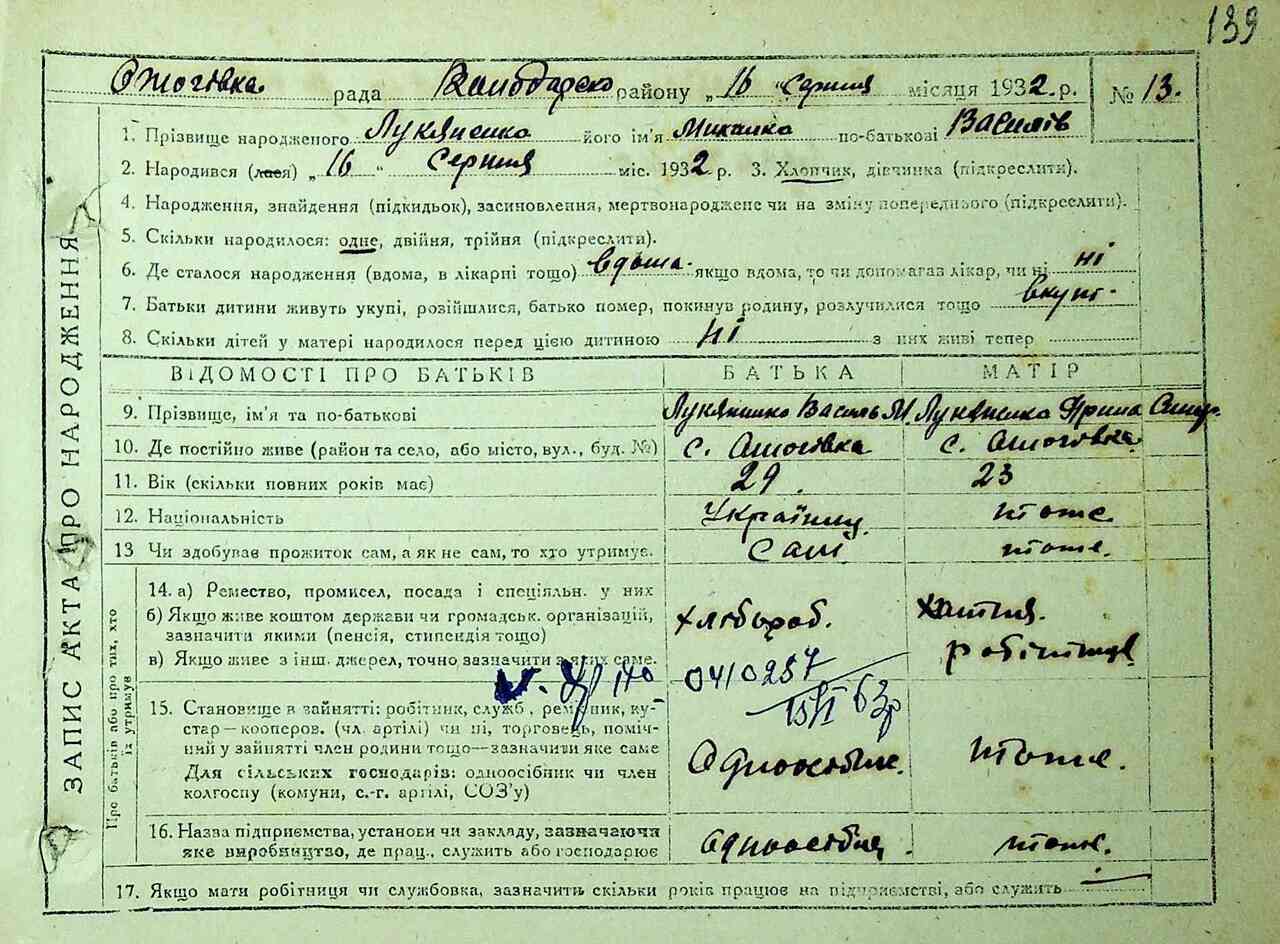 139
Ожогівка рада Володарсько району „16 “ Серпня місяця 1932 р. № 13.
ЗАПИС АКТА ПРО НАРОДЖЕННЯ
1. Прізвище народженого Лукяненко його ім'я Михайло по-батькові Василів
2. Народився (лася) „16“ Серпня міс. 1932 р. 3. Хлопчик, дівчинка (підкреслити).
4. Народження, знайдення (підкидьок), засиновлення, мертвонароджене чи на зміну попереднього (підкреслити).
5. Скільки народилося: одне, двійня, трійня (підкреслити).
6. Де сталося народження (вдома, в лікарні тощо) вдома. якщо вдома, то чи допомагав лікар, чи ні ні
7. Батьки дитини живуть укупі, розійшлися, батько помер, покинув родину, розлучилися тощо вкупі.
8. Скільки дітей у матері народилося перед цією дитиною ні з них живі тепер
ВІДОМОСТІ ПРО БАТЬКІВ БАТЬКА МАТІР
9. Прізвище, ім'я та по-батькові Лукяненко Василь М. Лукяненко Ярина
10. Де постійно живе (район та село, або місто, вул., буд. №) с. Ожогівка с. Ожогівка
11. Вік (скільки повних років має) 29. 23
12. Національність Українец тоже
13 Чи здобував прожиток сам, а як не сам, то хто утримує. сам тоже.
Про батьків або про тих, хто
їх утримув
14. а) Ремество, промисел, посада і спеціяльн. у них
б) Якщо живе коштом держави чи громадськ. організацій,
зазначити якими (пенсія, стипендія тощо) хлібороб. хатня
в) Якщо живе з інш. джерел, точно зазначити з яких саме. робітниця
0410257
15/І 63р
15. Становище в зайнятті: робітник, служб., ремісник, ку-
стар—кооперов. (чл. артілі) чи ні, торговець, поміч-
ний у зайнятті член родини тощо—зазначити яке саме
Для сільських господарів: одноосібник чи член
колгоспу (комуни, с.-г. артілі, СОЗ'у) тоже.
16. Назва підприємства, установи чи закладу, зазначаючи
яке виробництво, де прац., служить або господарює тоже.
17. Якщо мати робітниця чи службовка, зазначить скільки років працює на підприємстві, або служить —